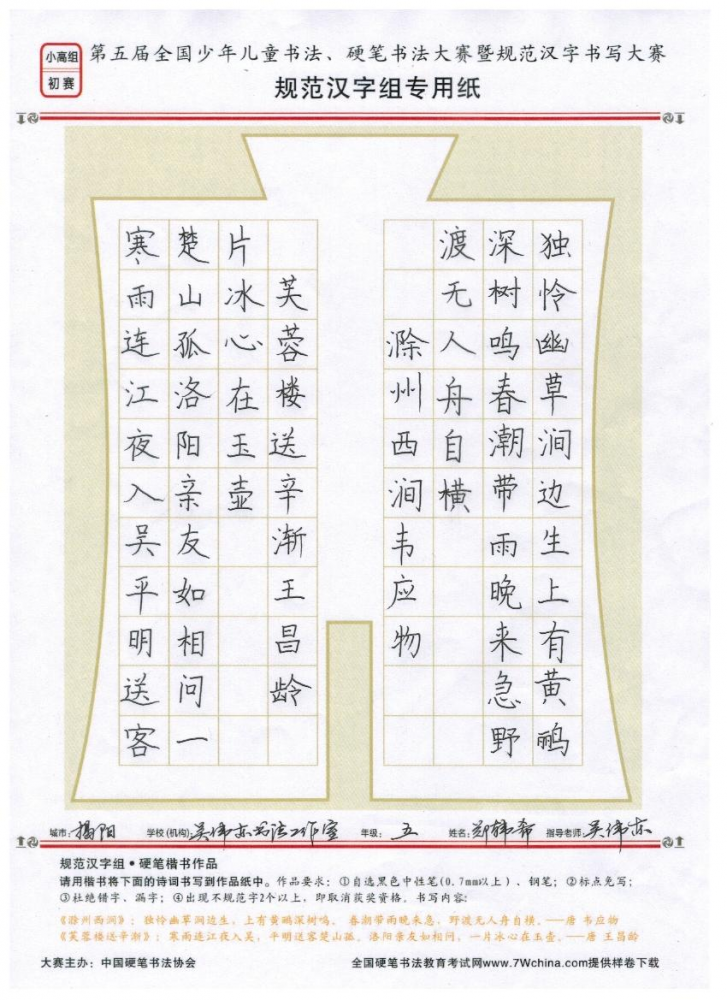 小高组
初赛
第五届全国少年儿童书法、硬笔书法大赛暨规范汉字书写大赛
规范汉字组专用纸
独怜幽草涧边生上有黄鹂
深树鸣春潮带雨晚来急野
渡无人舟自横
滁州西涧韦应物
寒雨连江夜入吴平明送客
楚山孤洛阳亲友如相问一
片冰心在玉壶
芙蓉楼送辛渐王昌龄
城市：揭阳 学校(机构)：吴伟书法工作室 年级：五 姓名：郑希 指导老师：吴伟
规范汉字组·硬笔楷书作品
请用楷书将下面的诗词书写到作品纸中。作品要求：①自选黑色中性笔(0.7mm以上)、钢笔；②标点免写；
③杜绝错字、漏字；④出现不规范字2个以上，即取消获奖资格。书写内容：
《滁州西涧》：独怜幽草涧边生，上有黄鹂深树鸣。 春潮带雨晚来急，野渡无人舟自横。——唐 韦应物
《芙蓉楼送辛渐》：寒雨连江夜入吴，平明送客楚山孤。洛阳亲友如相问，一片冰心在玉壶。——唐 王昌龄
大赛主办：中国硬笔书法协会 全国硬笔书法教育考试网www.7Wchina.com提供样卷下载